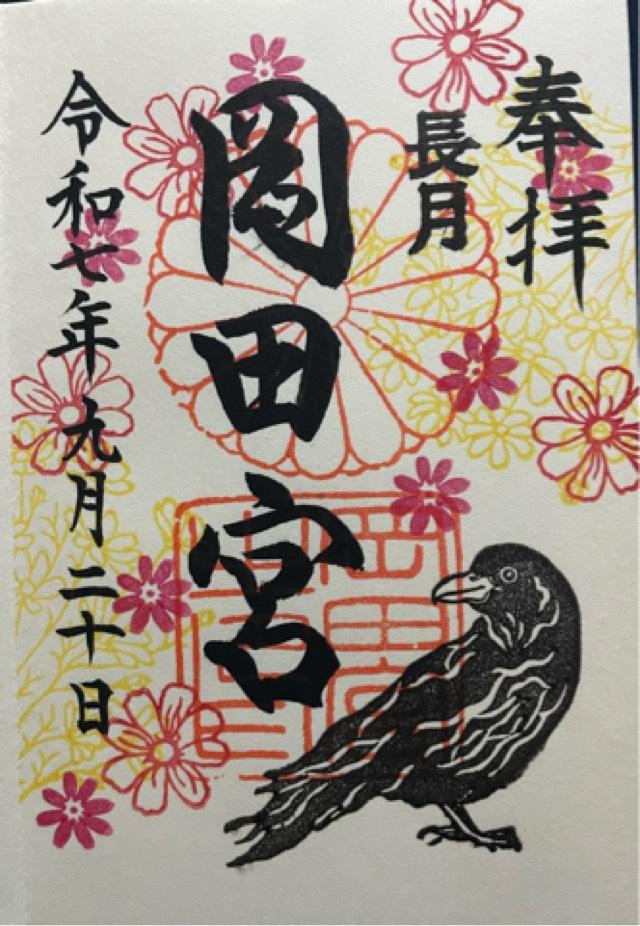 奉拝
長月
岡田宮
令和七年九月二十日